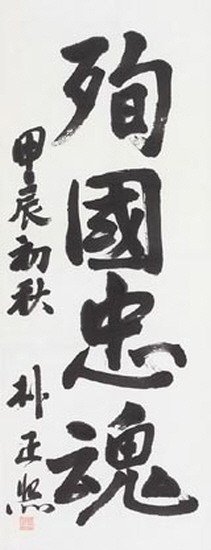 殉國忠魂
甲辰初秋
朴正熙